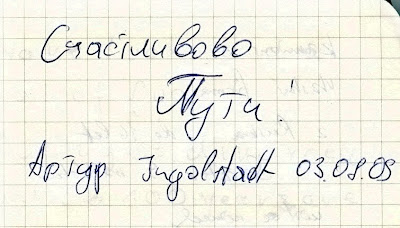 Счастливово
Пути!
Артур Ingolstadt 03.08.09